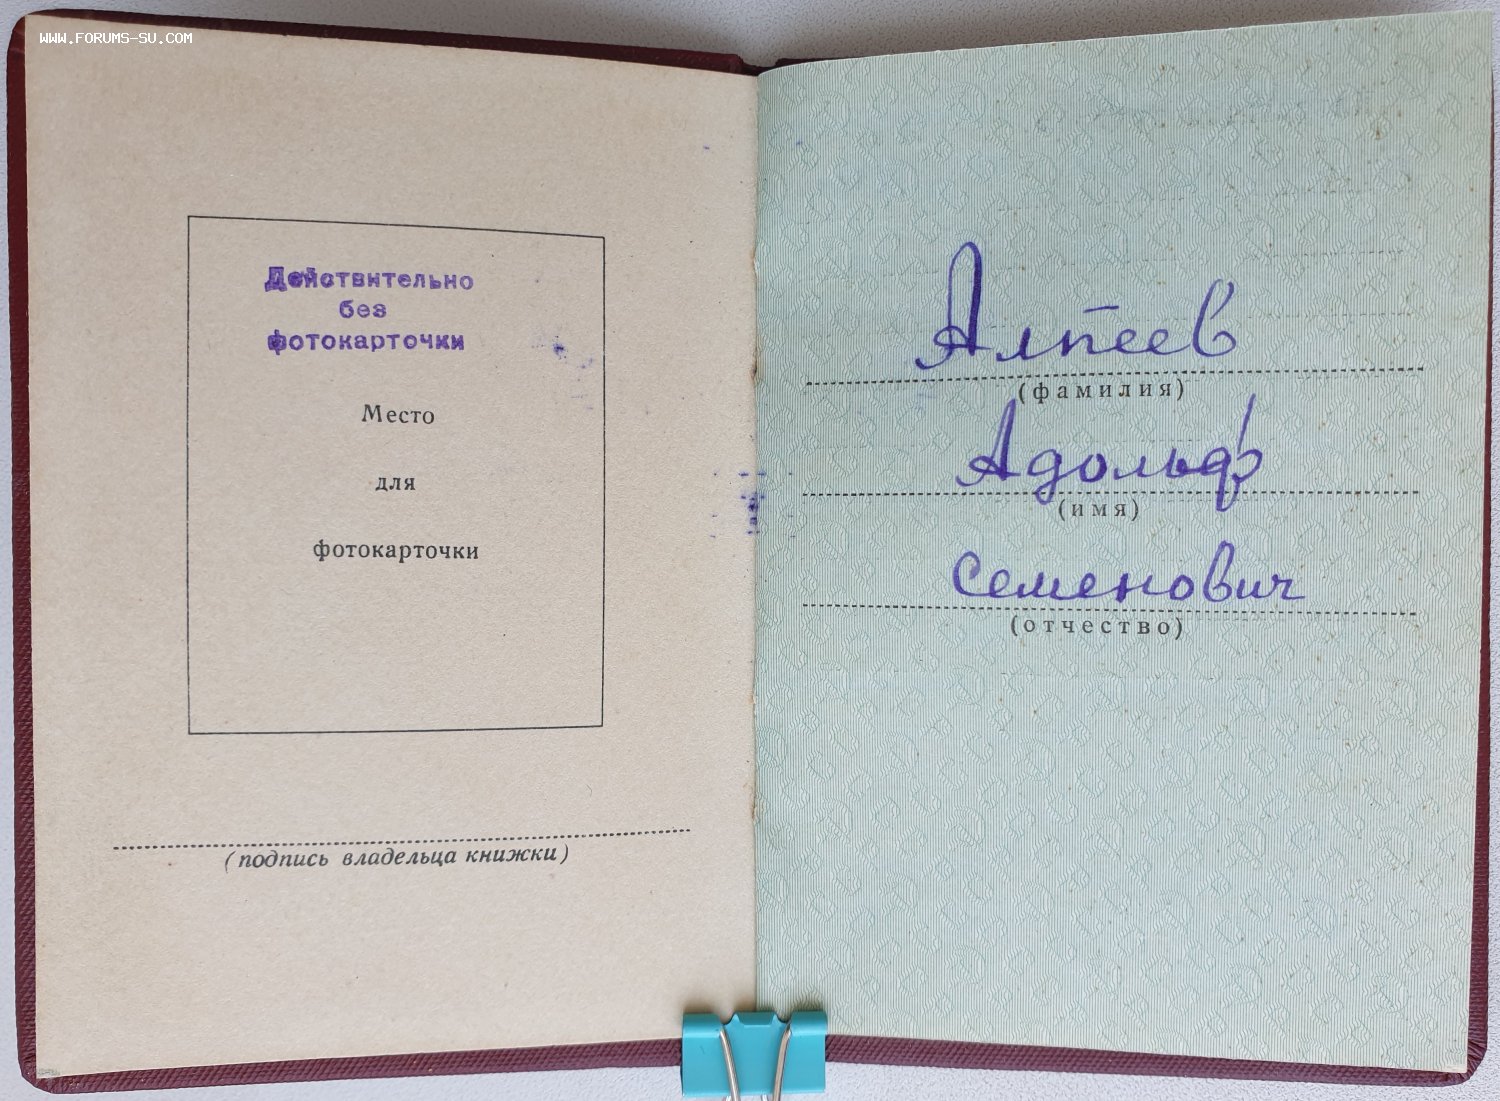 www.FORUMS-SU.COM
Действительно
без
фотокарточки
Место
для
фотокарточки
(подпись владельца книжки)
Алпеев
(фамилия)
Адольф
(имя)
Семенович
(отчество)